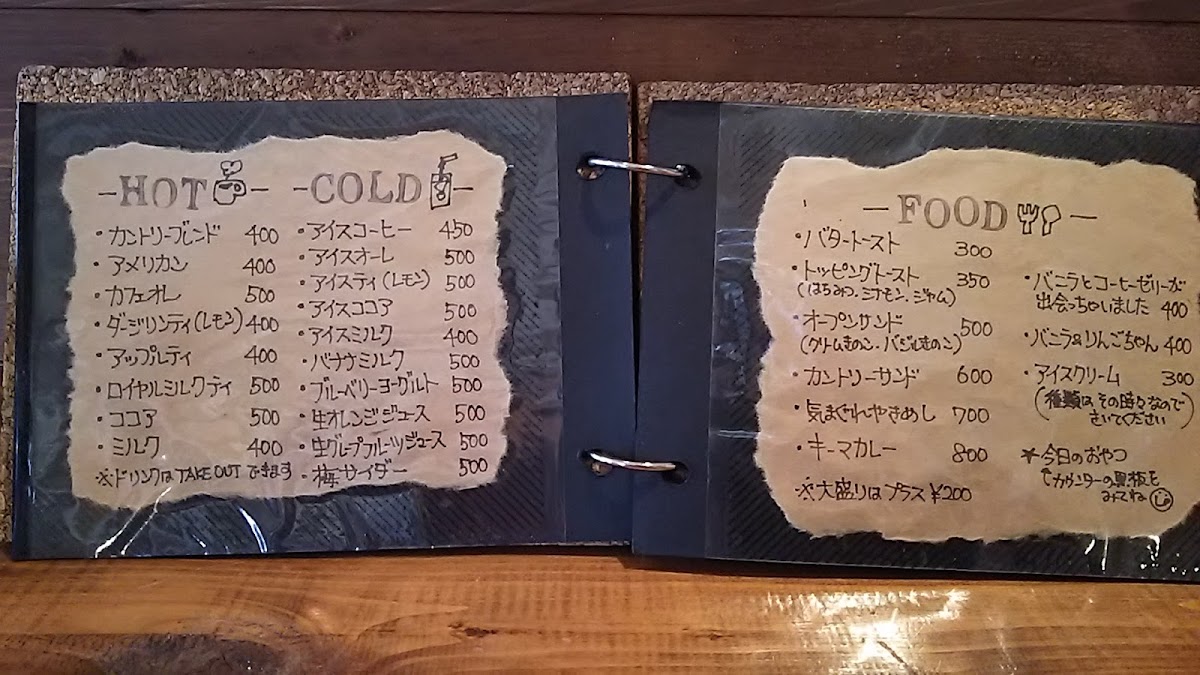 -HOT-
・カントリーブレンド 400
・アメリカン 400
・カフェオレ 500
・ダージリンティ(レモン) 400
・アップルティ 400
・ロイヤルミルクティ 500
・ココア 500
・ミルク 400
※ドリンクは TAKE OUT できます
-COLD-
・アイスコーヒー 450
・アイスオーレ 500
・アイスティ(レモン) 500
・アイスココア 500
・アイスミルク 400
・バナナミルク 500
・ブルーベリーヨーグルト 500
・生オレンジジュース 500
・生グレープフルーツジュース 500
・梅サイダー 500
-FOOD-
・バタートースト 300
・トッピングトースト 350
(はちみつ、シナモン、ジャム)
・オープンサンド 500
(クリームきのこ・バジルきのこ)
・カントリーサンド 600
・気まぐれやきめし 700
・キーマカレー 800
※大盛りはプラス ¥200
・バニラとコーヒーゼリーが
出会っちゃいました 400
・バニラ&りんごちゃん 400
・アイスクリーム 300
(種類はその時々なので
きいてください)
★今日のおやつ
カウンターの黒板を
みてね